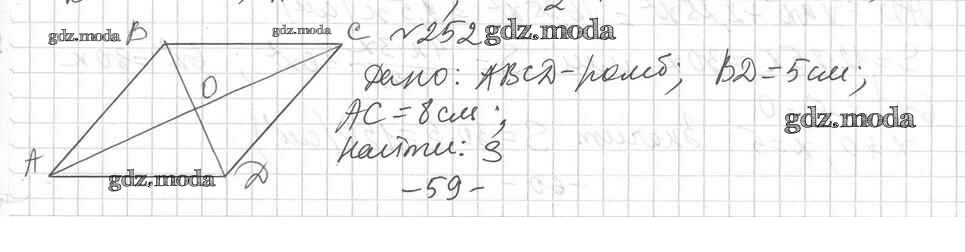 gdz.moda B gdz.moda C №252 gdz.moda
O Дано: ABCD-ромб; BD=5см;
AC=8см; gdz.moda
A Найти: S
gdz.moda D -59-